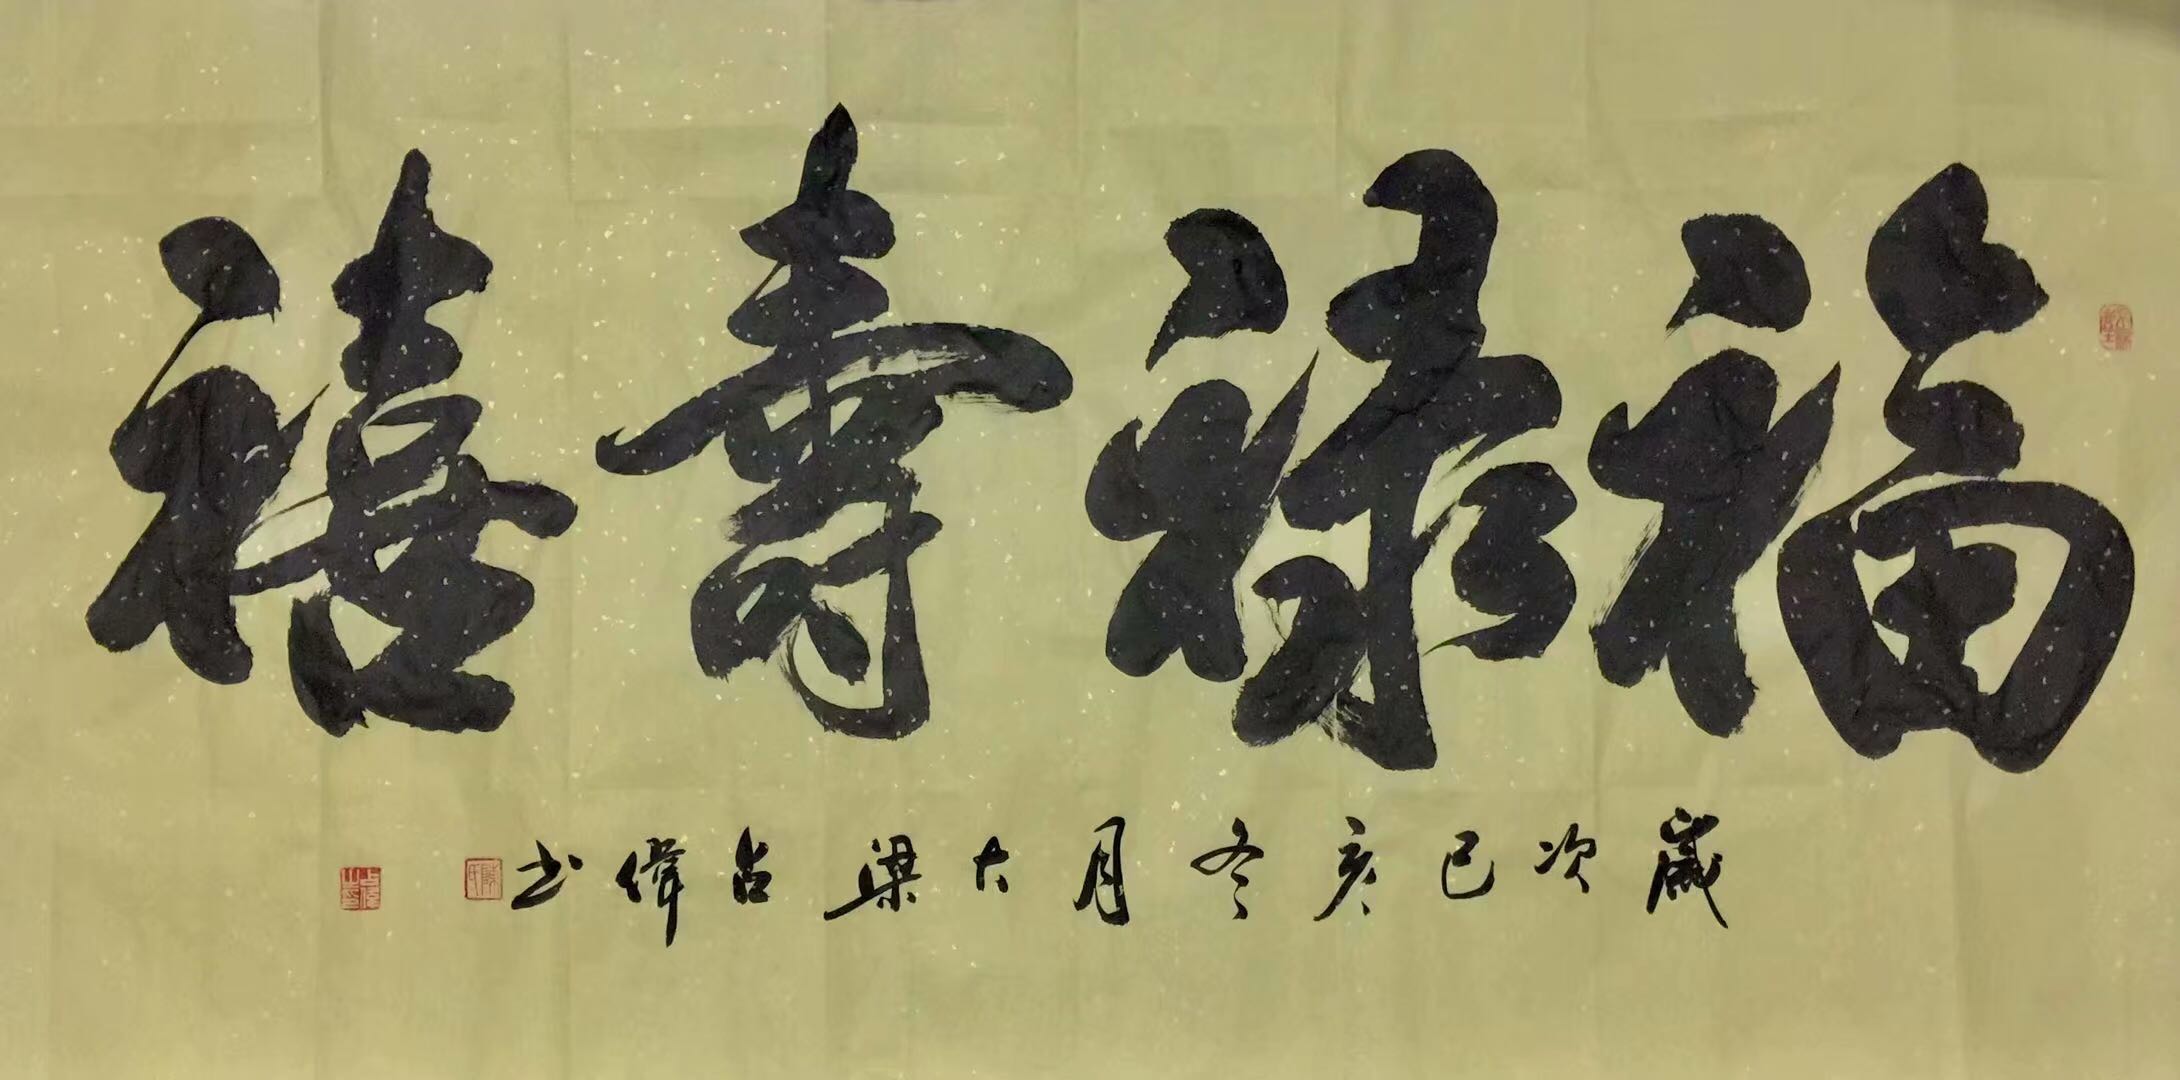 福祿壽禧
歲次己亥冬月大梁占偉书